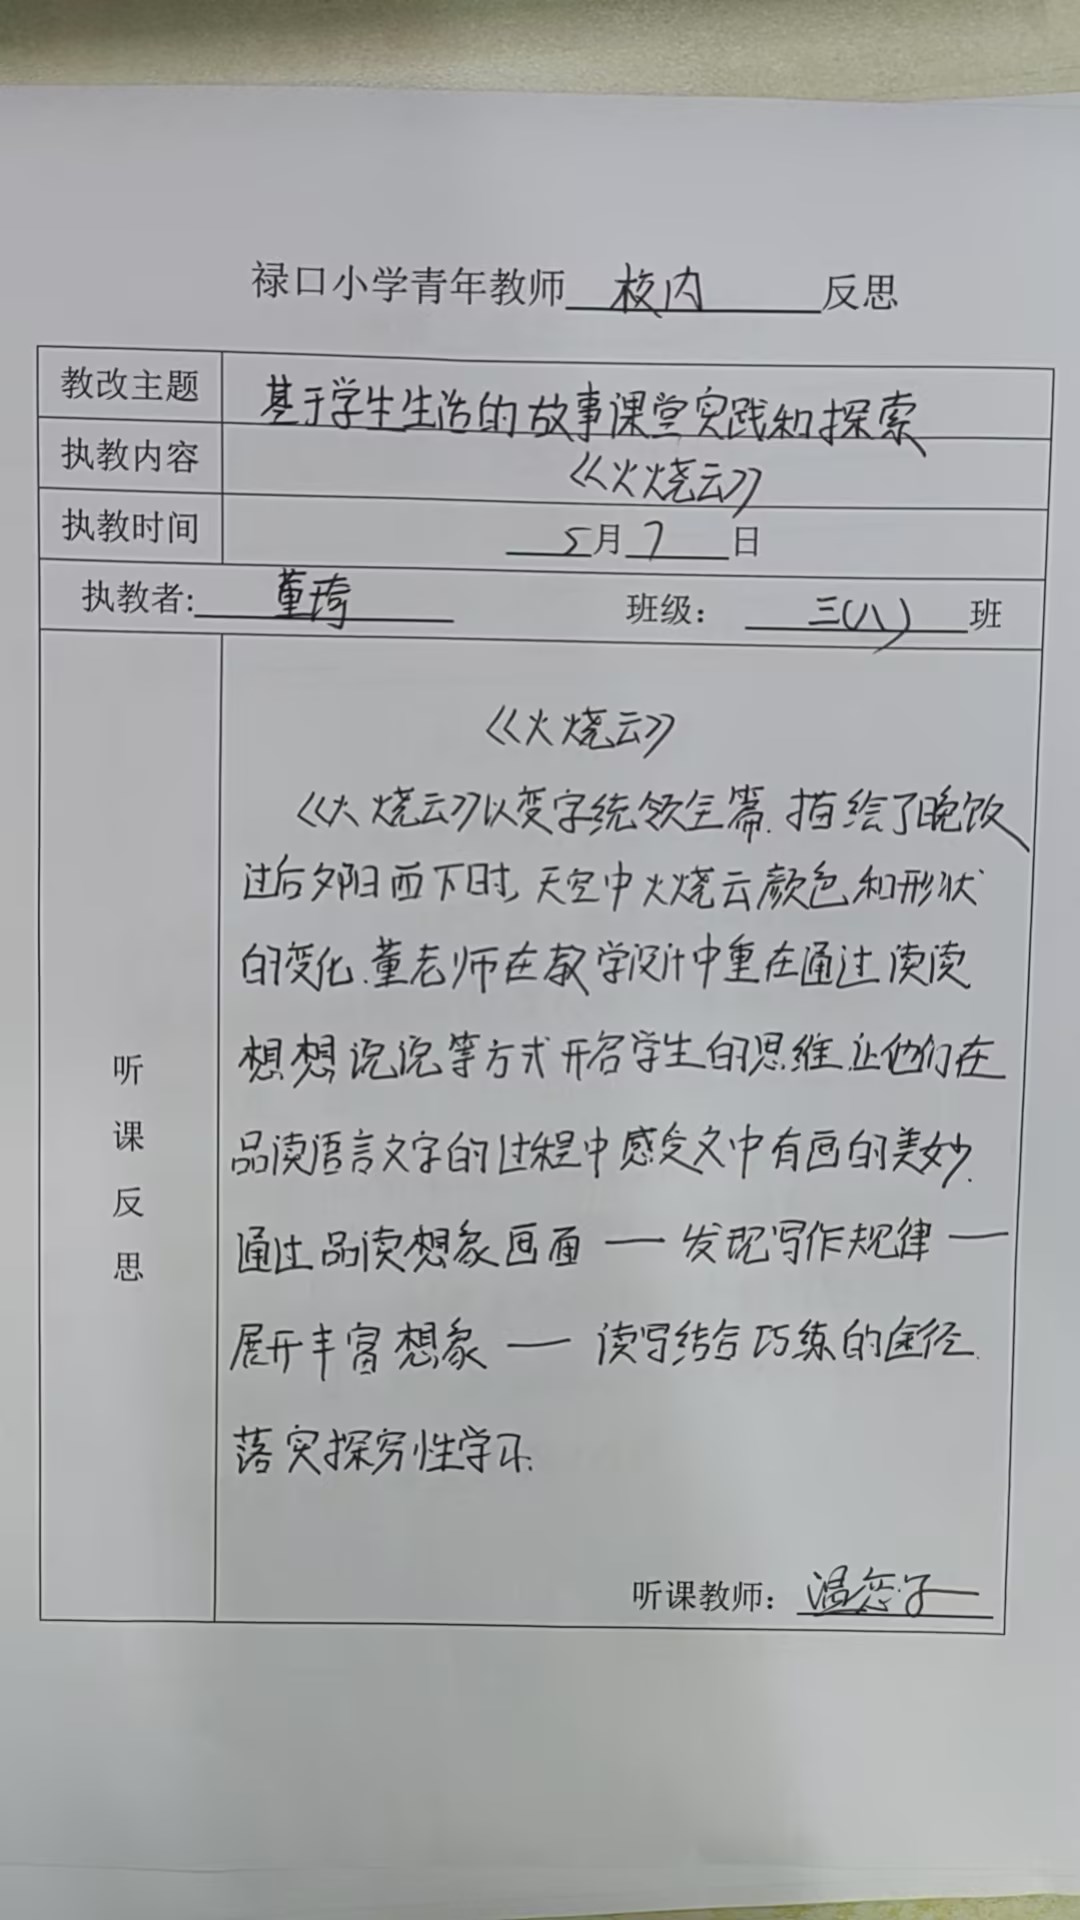 禄口小学青年教师 校内 反思
教改主题 基于学生生活的故事课堂实践和探索
执教内容 《火烧云》
执教时间 5月7日
执教者: 董琦 班级: 三(八)班
听课反思
《火烧云》
《火烧云》以变字统领全篇.描绘了晚饭
过后夕阳西下时,天空中火烧云颜色和形状
的变化.董老师在教学设计中重在通过读读
想想说说等方式开启学生的思维.让他们在
品读语言文字的过程中感受文中有画的美妙.
通过品读想象画面——发现写作规律——
展开丰富想象——读写结合巧练的途径.
落实探穷性学习.
听课教师: 温